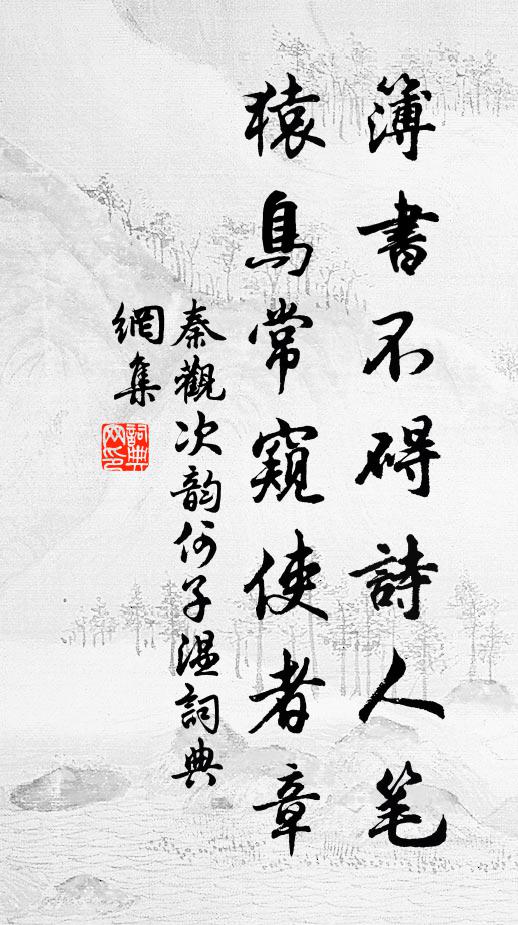 簿書不碍詩人笔
猿鳥常窺使者章
秦觀次韵何子温詞典
網集
詞典网印